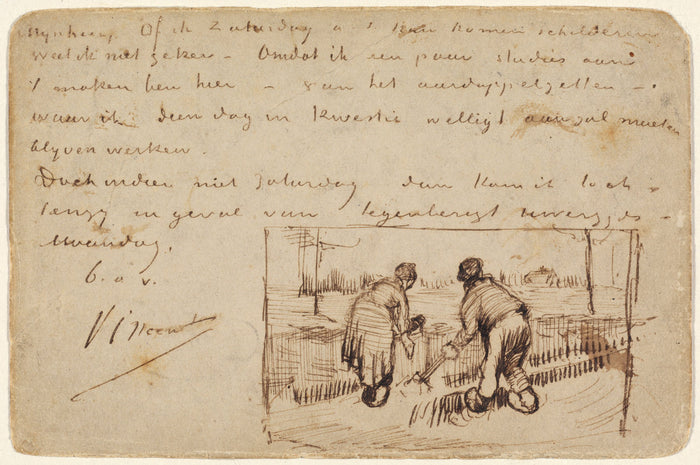 Mynheer, Of ik Zaturdag a s kan komen schilderen
weet ik niet zeker - Omdat ik een paar studies aan
't maken ben hier - van het aardappelzetten -
waar ik dien dag in kwestie wellijt aan zal moeten
blyven werken.
Doch indien niet Zaturdag dan kom ik toch
tenzy in geval van tegenberigt Uwerzyds -
Maandag.
b. a v.
Vincent